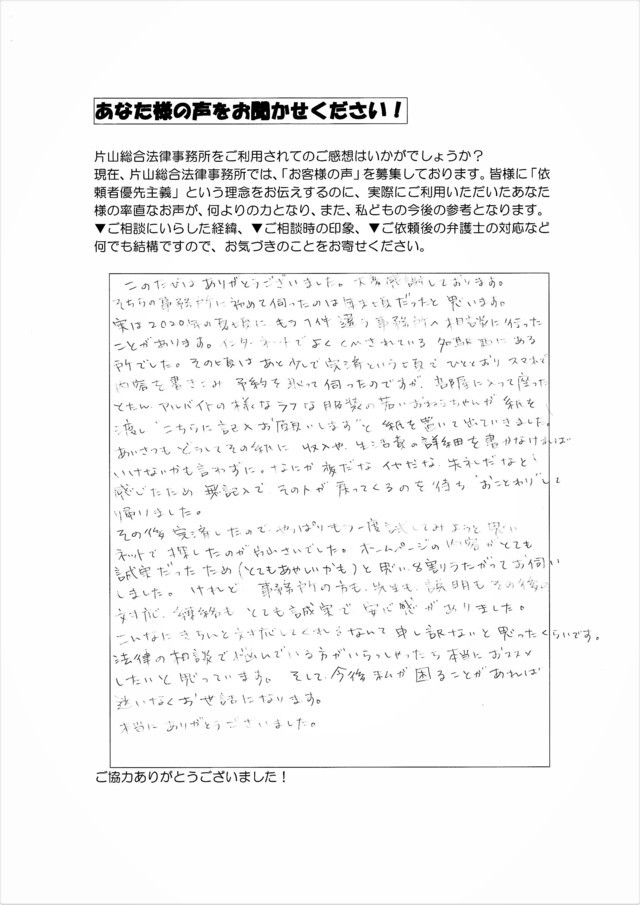 あなた様の声をお聞かせください！
片山総合法律事務所をご利用されてのご感想はいかがでしょうか？
現在、片山総合法律事務所では、「お客様の声」を募集しております。皆様に「依
頼者優先主義」という理念をお伝えするのに、実際にご利用いただいたあなた
様の率直なお声が、何よりの力となり、また、私どもの今後の参考となります。
▼ご相談にいらした経緯、▼ご相談時の印象、▼ご依頼後の弁護士の対応など
何でも結構ですので、お気づきのことをお寄せください。
このたびは ありがとうございました。大変感謝しております。
そちらの事務所に初めて伺ったのは 頃だったと思います。
実は2020年の夏頃に もう1件 違う事務所へ相談に行った
ことがあります。インターネットでよく されている にある
所でした。その頃はあと少しで完済という頃で ひととおり スマホで
内容を書きこみ 予約を取って伺ったのですが、部屋に入って座った
とたん、アルバイトの様なラフな服装の若いおねえちゃんが 紙を
渡し"こちらに記入お願いします"と 紙を置いて出ていきました。
あいさつも どうしてその紙に 収入や、生活費の詳細を書かなければ
いけないかも言わずに。なにか嫌だな、イヤだな、失礼だなと
感じたため 無記入で、その人が戻ってくるのを待ち"おことわり"して
帰りました。
その後 完済したので、やっぱりもう一度試してみようと思い
ネットで探したのが片山さんでした。ホームページの内容がとても
誠実だったため(とてもあやしいかも)と思い、8割うたがってお伺い
しました。けれど 事務所の方も、先生も、説明も その後の
対応、連絡も とても誠実で 安心感がありました。
こんなにきちんと対応してくれるなんて申し訳ないと思ったくらいです。
法律の相談で悩んでいる方がいらっしゃったら本当におススメ
したいと思っています。 そして、今後私が困ることがあれば
迷いなくお世話になります。
本当にありがとうございました。
ご協力ありがとうございました！